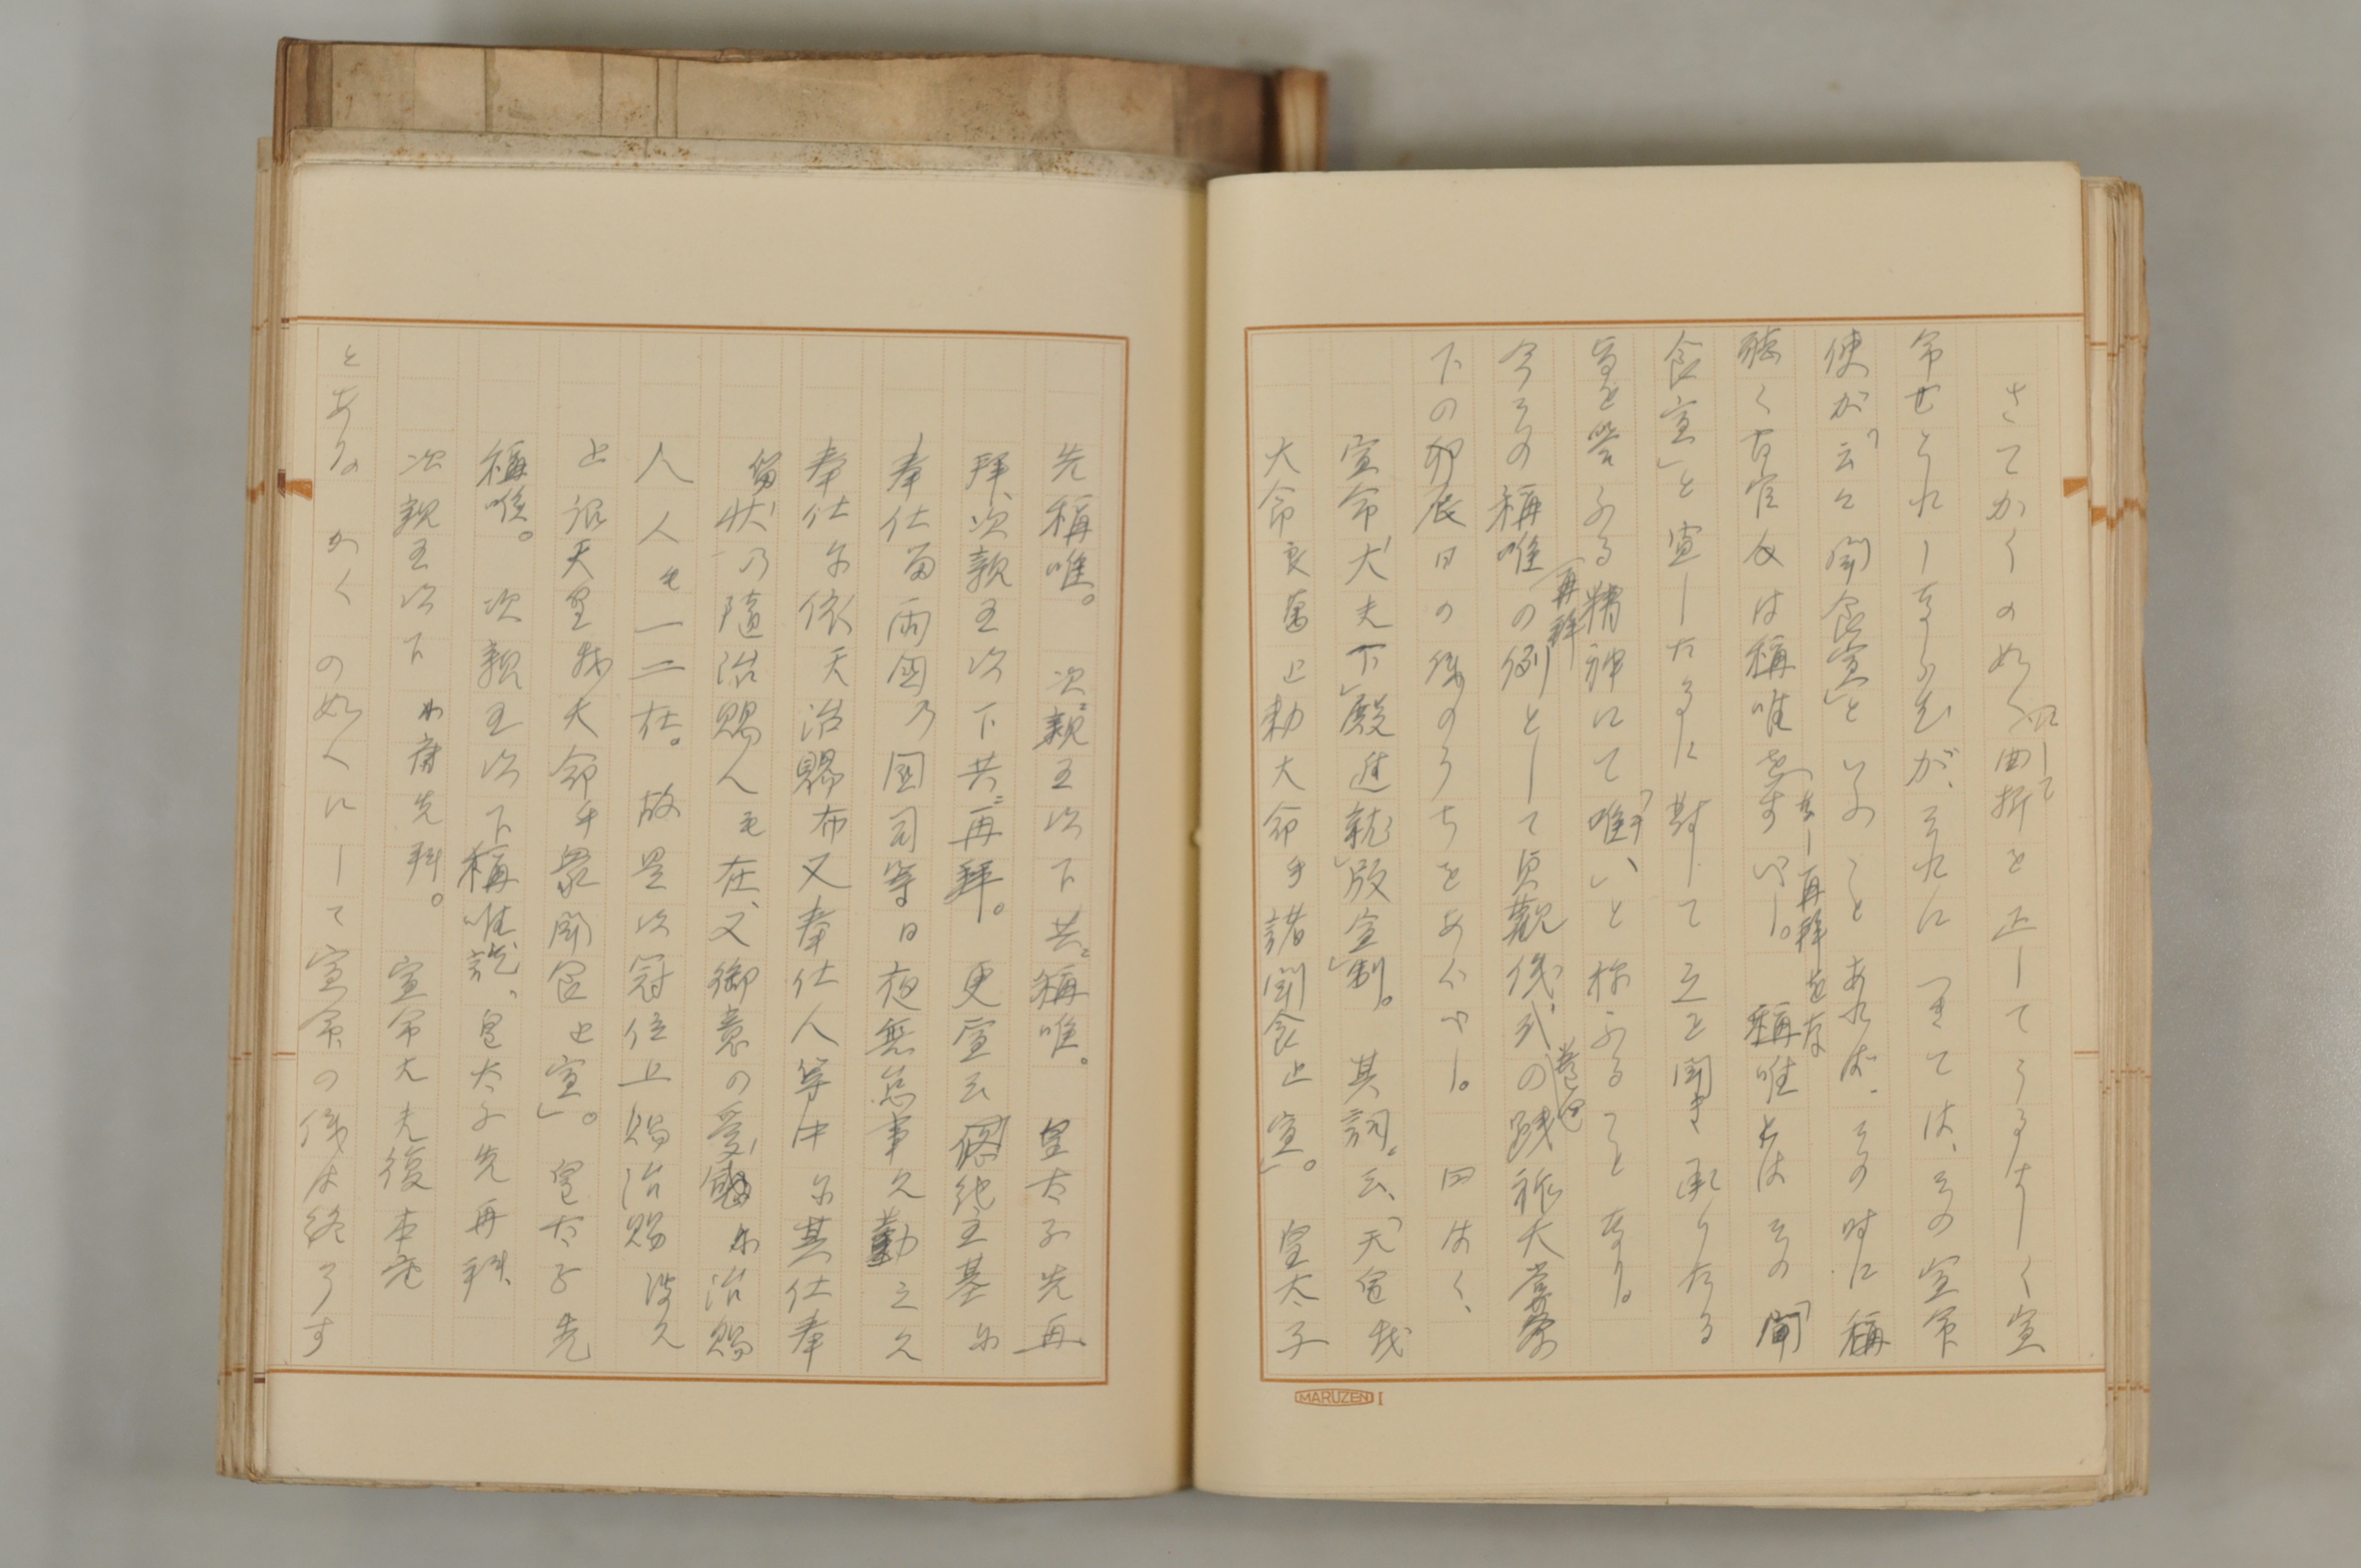 さてかくの如くにして曲折を正してうるはしく宣
命せられしならむが、それにつきては、その宣命
使が「云々聞食宣」といふことあれば、その時に稱
聽く百官人は稱唯をなし再拜をなすべし。稱唯とは その「聞
食宣」と宣したるに対して之を聞き承りたる
旨を答ふる精神にて「唯ヲ」と称ふることなり。
今その稱唯再拜の例として貞觀儀式の踐祚大嘗祭
下の卯辰日の條のうちをあぐべし。曰はく、
宣命大夫下殿進就版宣制。其詞云、「天皇我
大命良萬止勅大命乎諸聞食止宣」。皇太子
先稱唯。次親王次下共稱唯。皇太子先再
拜、次親王次下共再拜。更宣云「悠紀主基尓
奉仕留両國乃國司等日夜無怠事久勤之久
奉仕尓依天治賜布又奉仕人等中尓其仕奉
留状乃隨治賜人毛在、又御意の愛盛尓治賜
人人毛一二在。故是以冠位上賜治賜波久
止詔天皇我大命乎衆聞食止宣」。皇太子先
稱唯。次親王次下稱唯訖、皇太子先再拜、
次親王次下 先拜。宣命大夫復本座
とあり。かくの如くにして宣命の儀は終了す
MARUZEN I